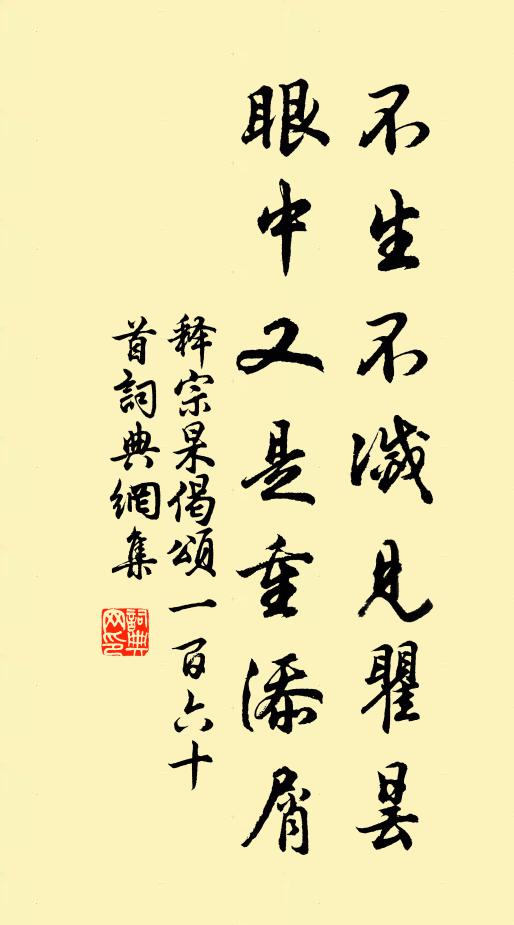 不生不滅見瞿曇
眼中又是重添屑
释宗杲偈頌一百六十
首詞典網集
詞典
网印